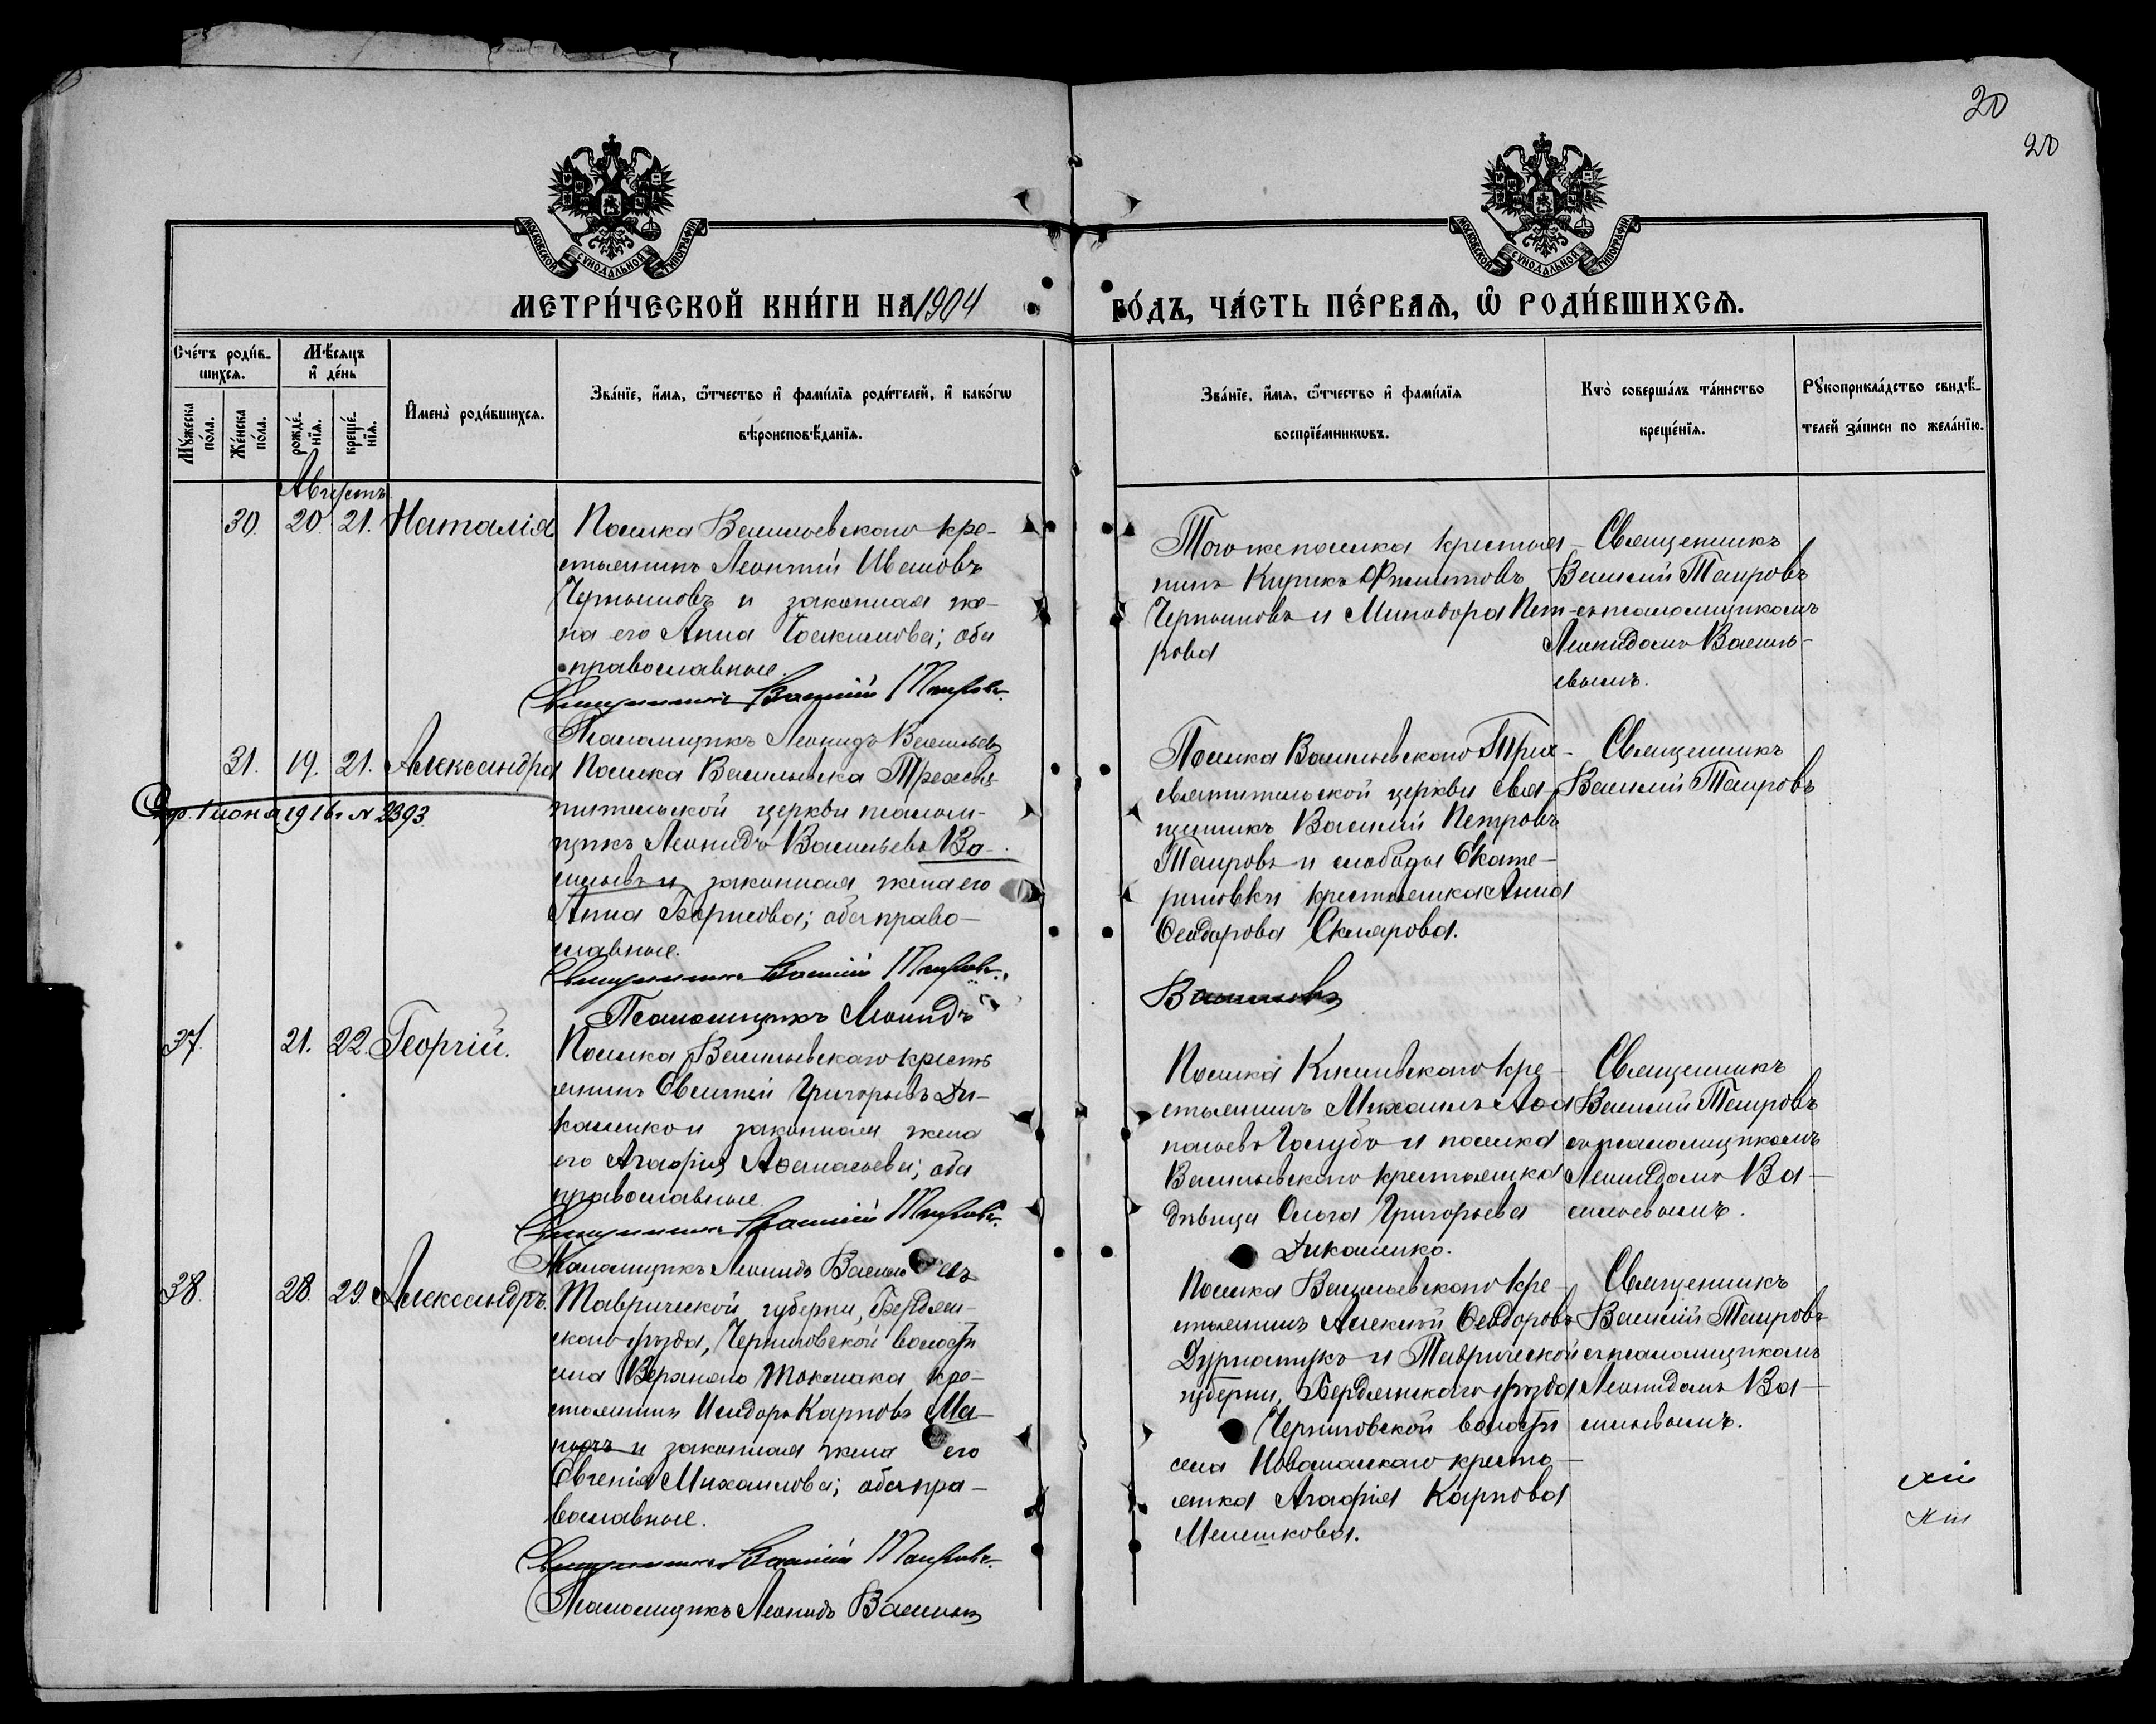 20
20
МОСКОВСКОЙ СУНОДАЛЬНОЙ ТИПОГРАФІИ
МОСКОВСКОЙ СУНОДАЛЬНОЙ ТИПОГРАФІИ
МЕТРИ́ЧЕСКОЙ КНИ́ГИ НА 1904
ГО́ДЪ, ЧА́СТЬ ПЕ́РВАѦ, Ѡ РОДИ́ВШИХСѦ.
Сче́тъ роди́в-
шихсѧ.
Мꙋ́жеска по́ла.
Же́нска по́ла.
Мѣ́сѧцъ
и҆ де́нь
рожде́-нїѧ.
креще́-нїѧ.
И҆мена̀ роди́вшихсѧ.
Зва́нїе, и҆́мѧ, ѻ҆́тчество и҆ фами́лїѧ роди́телей, и҆ како́гѡ
вѣроисповѣ́данїѧ.
Зва́нїе, и҆́мѧ, ѻ҆́тчество и҆ фами́лїѧ
воспрїе́мникѡвъ.
Кто̀ соверша́лъ та́инство
креще́нїѧ.
Рꙋкоприкла́дство свидѣ́-
телей за́писи по жела́нїю.
Августъ
30. 20. 21. Наталія
Поселка Васильевскаго кре-
стьянинъ Леонтій Ивановъ
Чернышовъ и законная же-
на его Анна Іоакимова; оба
православные.
Священникъ Василій Таировъ.
Псаломщикъ Леонидъ Васильевъ
Того же поселка крестья-
нинъ Кирикъ Филиповъ
Чернышовъ и Минодора Пет-
рова
Священникъ
Василій Таировъ
съ псаломщикомъ
Леонидомъ Василь-
евымъ.
31. 19. 21. Александра
1 іюня 1916 г № 2393
Поселка Васильевка Трехсвя-
тительской церкви псалом-
щикъ Леонидъ Васильевъ Ва-
сильевъ и законная жена его
Анна Борисова; оба право-
славные.
Священникъ Василій Таировъ.
Псаломщикъ Леонидъ
Васильевъ
Поселка Васильевскаго Трех-
святительской церкви свя-
щенникъ Василій Петровъ
Таировъ и слободы Екате-
риновки крестьянка Анна
Ѳеодорова Склярова.
Священникъ
Василій Таировъ
37. 21. 22. Георгій.
Поселка Васильевскаго кресть
янинъ Евсигній Григорьевъ Ди-
каленко и законная жена
его Агафія Аѳанасьева; оба
православные
Священникъ Василій Таировъ.
Псаломщикъ Леонидъ Васильевъ
Поселка Кисилевскаго кре-
стьянинъ Михаилъ Аѳа
насьевъ Голубъ и поселка
Васильевскаго крестьянка
дѣвица Ольга Григорьева
Дикаленко.
Священникъ
Василій Таировъ
съ псаломщикомъ
Леонидомъ Ва-
сильевымъ.
38. 28. 29. Александръ.
Таврической губерни, Бердян-
скаго уѣзда, Черниговской волости
села Верхняго Токмака кре-
стьянинъ Исидоръ Карповъ
и законная жена его
Евгенія Михаилова; оба пра-
вославные.
Священникъ Василій Таировъ.
Псаломщикъ Леонидъ Васильевъ
Поселка Васильевскаго кре-
стьянинъ Алексій Ѳеодоровъ
и Таврической
губерни, Бердянскаго уѣзда
Черниговской волости
села Новоспаскаго кресть-
янка Агафія Карпова
Мелешкова.
Священникъ
Василій Таировъ
съ псаломщикомъ
Леонидомъ Ва-
сильевымъ.